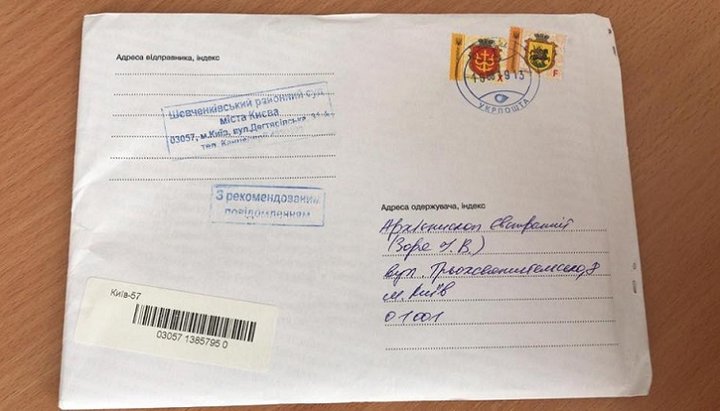 Адреса відправника, індекс
Шевченківський районний суд
міста Києва
03057, м.Київ, вул.Дегтярівська, 31-А
тел.
З рекомендованим
повідомленням
F
УКРПОШТА
Адреса одержувача, індекс
Архієпископ Євстратій
(Зоря І. В.)
вул. Трьохсвятительська, 8
м. Київ
01001
Київ-57
03057 1385795 0